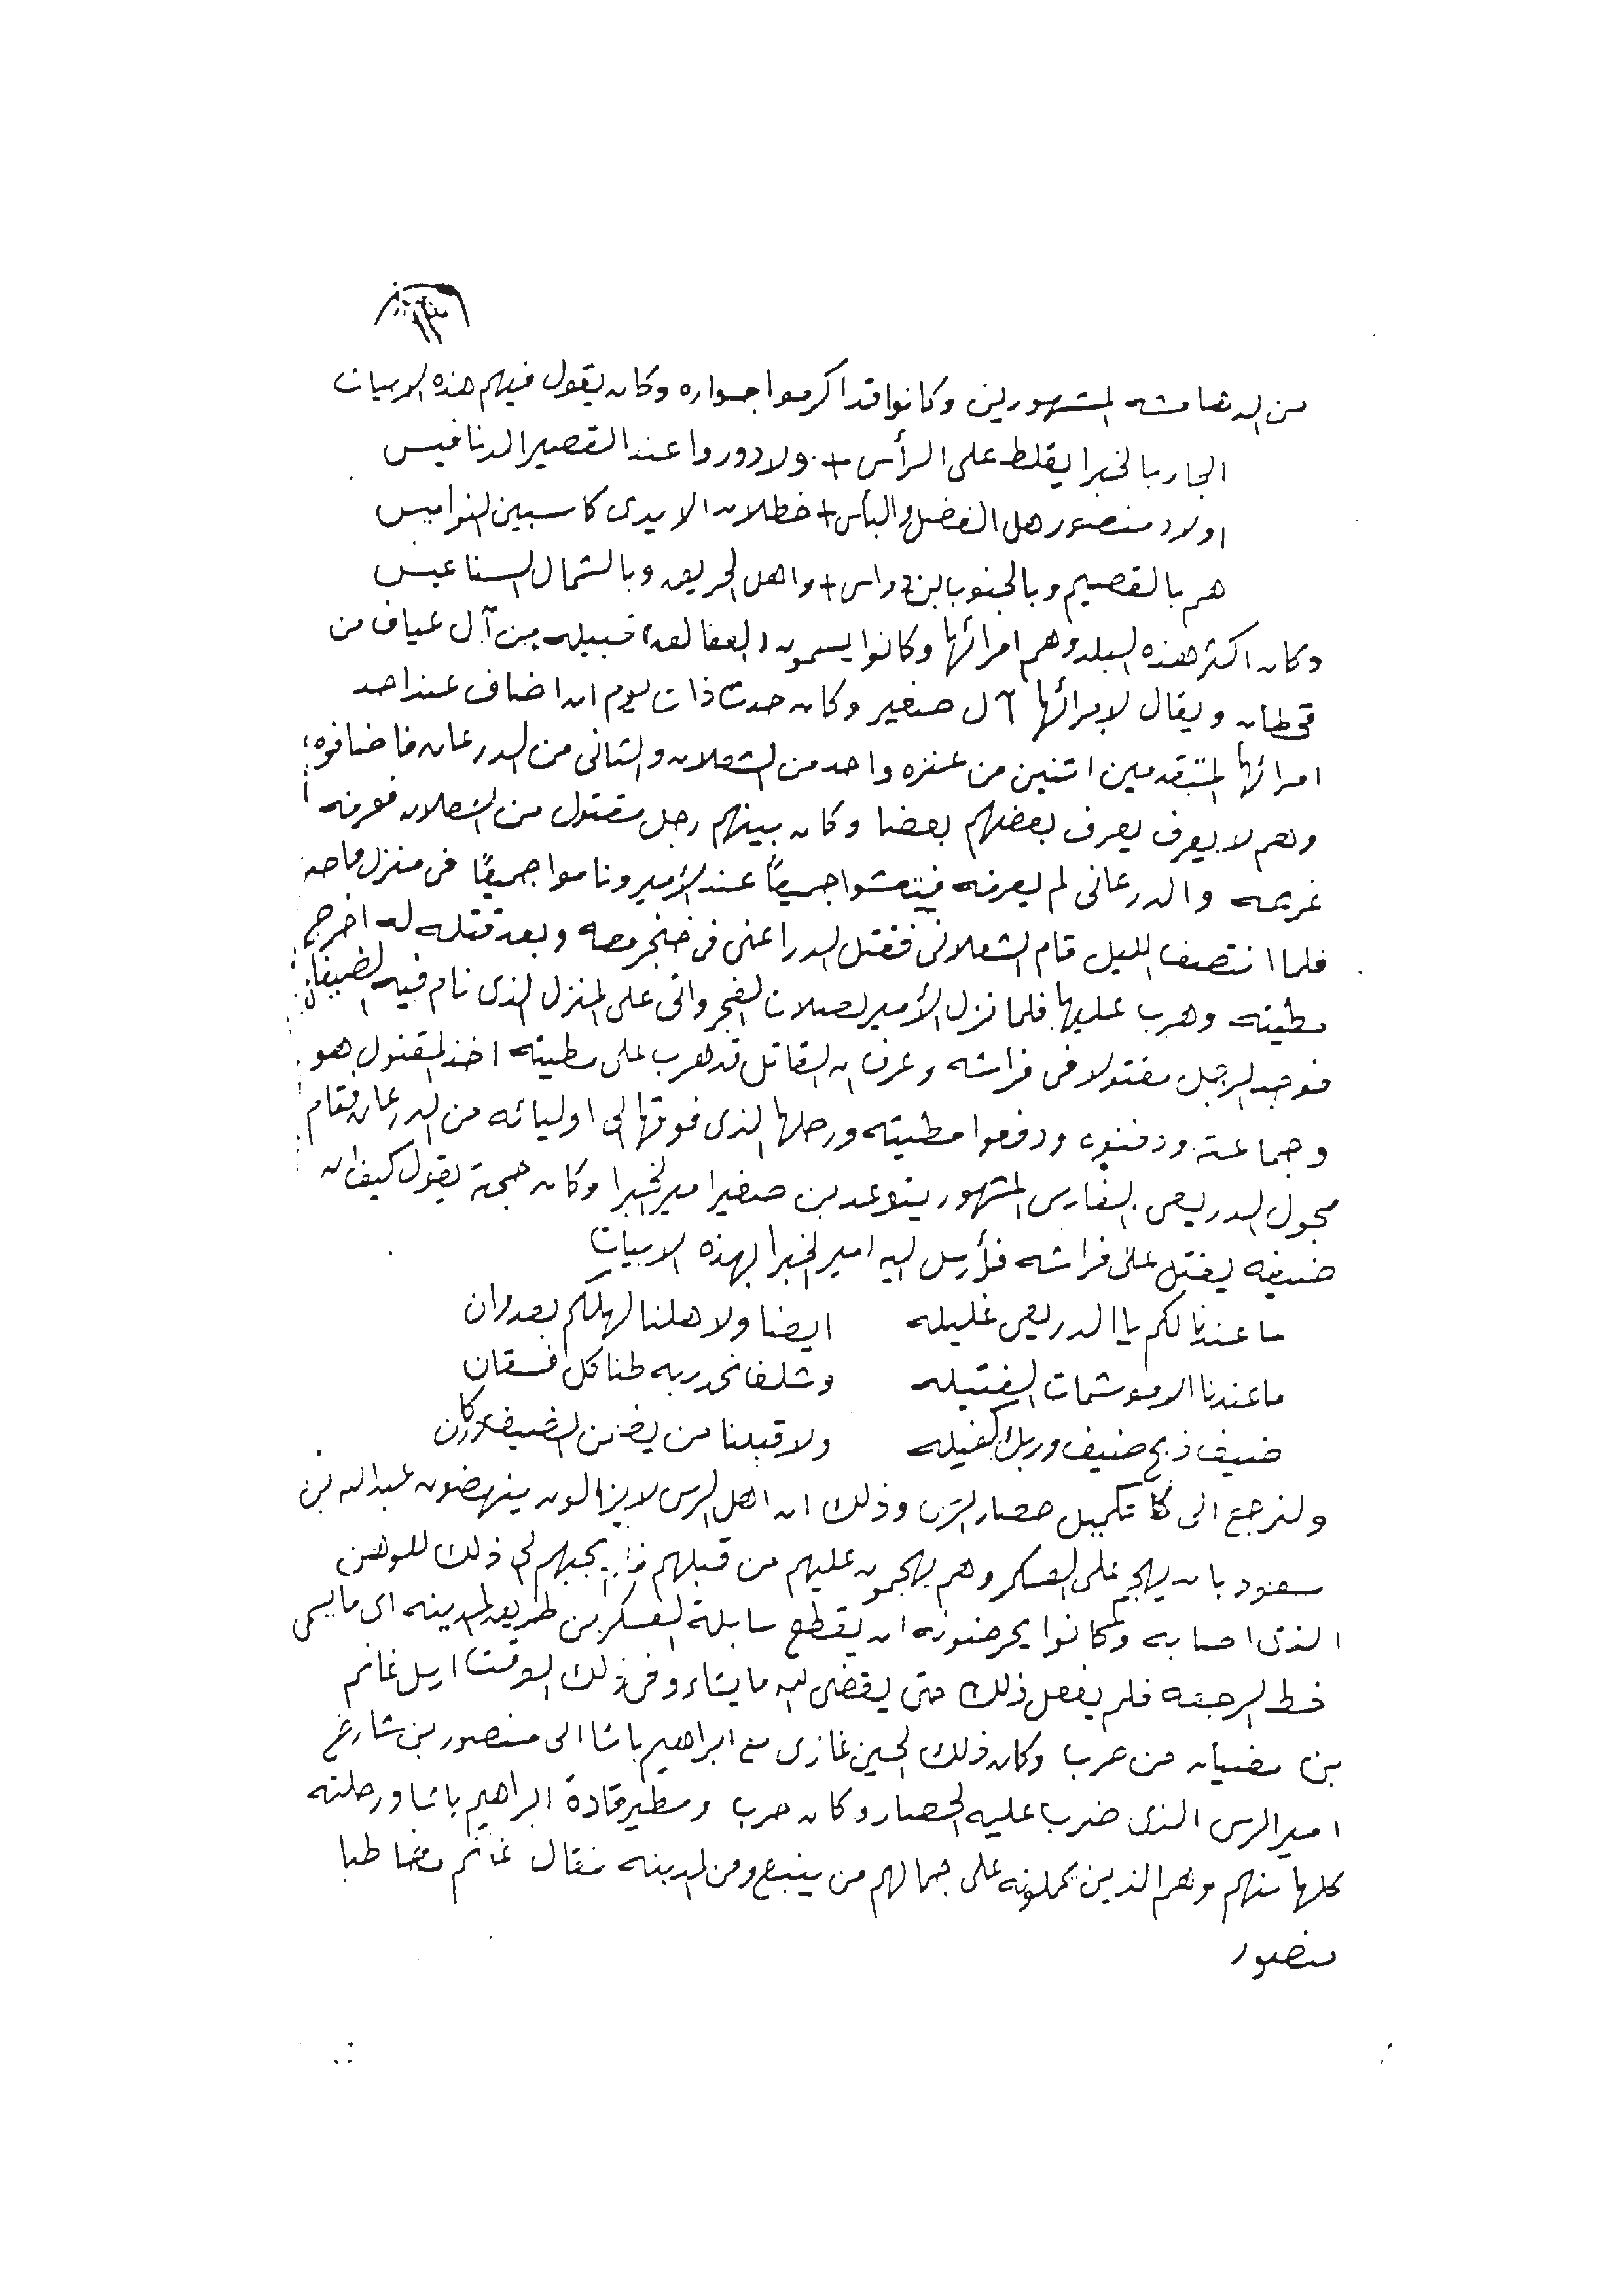 من الدهامشه المشهورين وكانوا قد اكرموا جواره وكان يقول فيهم هذه الابيات
الجار بالخبرا يقلط على الرأس + ولا دوروا عند القصير الدنافيس
اولاد منصور هل الفضل والبأس + خطلان الايدى كاسبين النواميس
هم بالقصيم وبالجنوب ابن دواس + واهل الحريق وبالشمال السناعيس
وكان اكثر هذه البلد وهم امرائها وكانوا يسمون (العفالق) قبيله من آل عياف من
قحطان ويقال لامرائها آل صغير وكان حدث ذات يوم ان اضاف عند احد
امرائها المتقدمين اثنين من عنزه واحد من الشعلان والثانى من الدرعان فاضافوه
وهم لا يعرف يعرف بعضهم بعضا وكان بينهم رجل مقتول من الشعلان فعرفه
غريمه والدرعانى لم يعرفه فيتعشوا جميعاً عند الأمير وناموا جميعًا فى منزل واحد
فلما انتصف الليل قام الشعلانى فقتل الدراعنى فى خنجر معه وبعد قتله له اخرج
مطيته وهرب عليها فلما نزل الأمير لصلات الفجر واتى على المنزل الذى نام فيه الضيفان
فوجد الرجل مقتولا فى فراشه وعرف ان القاتل قد هرب على مطيته اخذ المقتول هو
وجماعته ودفنوه ودفعوا مطيته ورحلها الذى فوقها الى اوليائه من الدرعان فقام
مجول الدريعى الفارس المشهور يتوعد بن صغير امير الخبرا وكان حجته يقول كيف ان
ضيفه يقتل على فراشه فأرسل اليه امير الخبرا بهذه الابيات
ما عندنا لكم يا الدريعى غليله ايضا ولا هلنا لهلكم بعدوان
ما عندنا الا موشمات الفتيله وشلف نحدر به طنا كل فسقان
ضيف ذبح ضيف وربك كفيله ولا قبلنا من يضمن الضيف لا كان
ولنرجع الى تكميل حصار الرس وذلك ان اهل الرس لا يزالون ينهضون عبدالله بن
سعود بان يهجم على العسكر وهم يهجمون عليهم من قبلهم فلم يجبهم لى ذلك للوهن
الذى اصابه وكانوا يحرضونه ان يقطع سابلة العسكر من طريق المدينه اى ما يسمى
خط الرجعه فلم يفعل ذلك حتى يقضى الله ما يشاء وفى ذلك الوقت ارسل غانم
بن مضيان من حرب وكان ذلك الحين غازى مع ابراهيم باشا الى منصور بن شارخ
امير الرس الذى ضرب عليه الحصار وكان حرب ومطير قادة ابراهيم باشا ورحلته
كلها منهم وهم الذين يحملونه على جمالهم من ينبع ومن المدينه فقال غانم مخاطبا
منصور